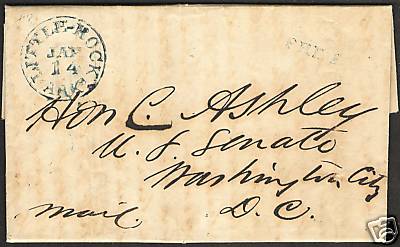 LITTLE-ROCK Ark.
JAN
14
FREE
Hon C. Ashley
U. S. Senate
Washington City
mail D. C.